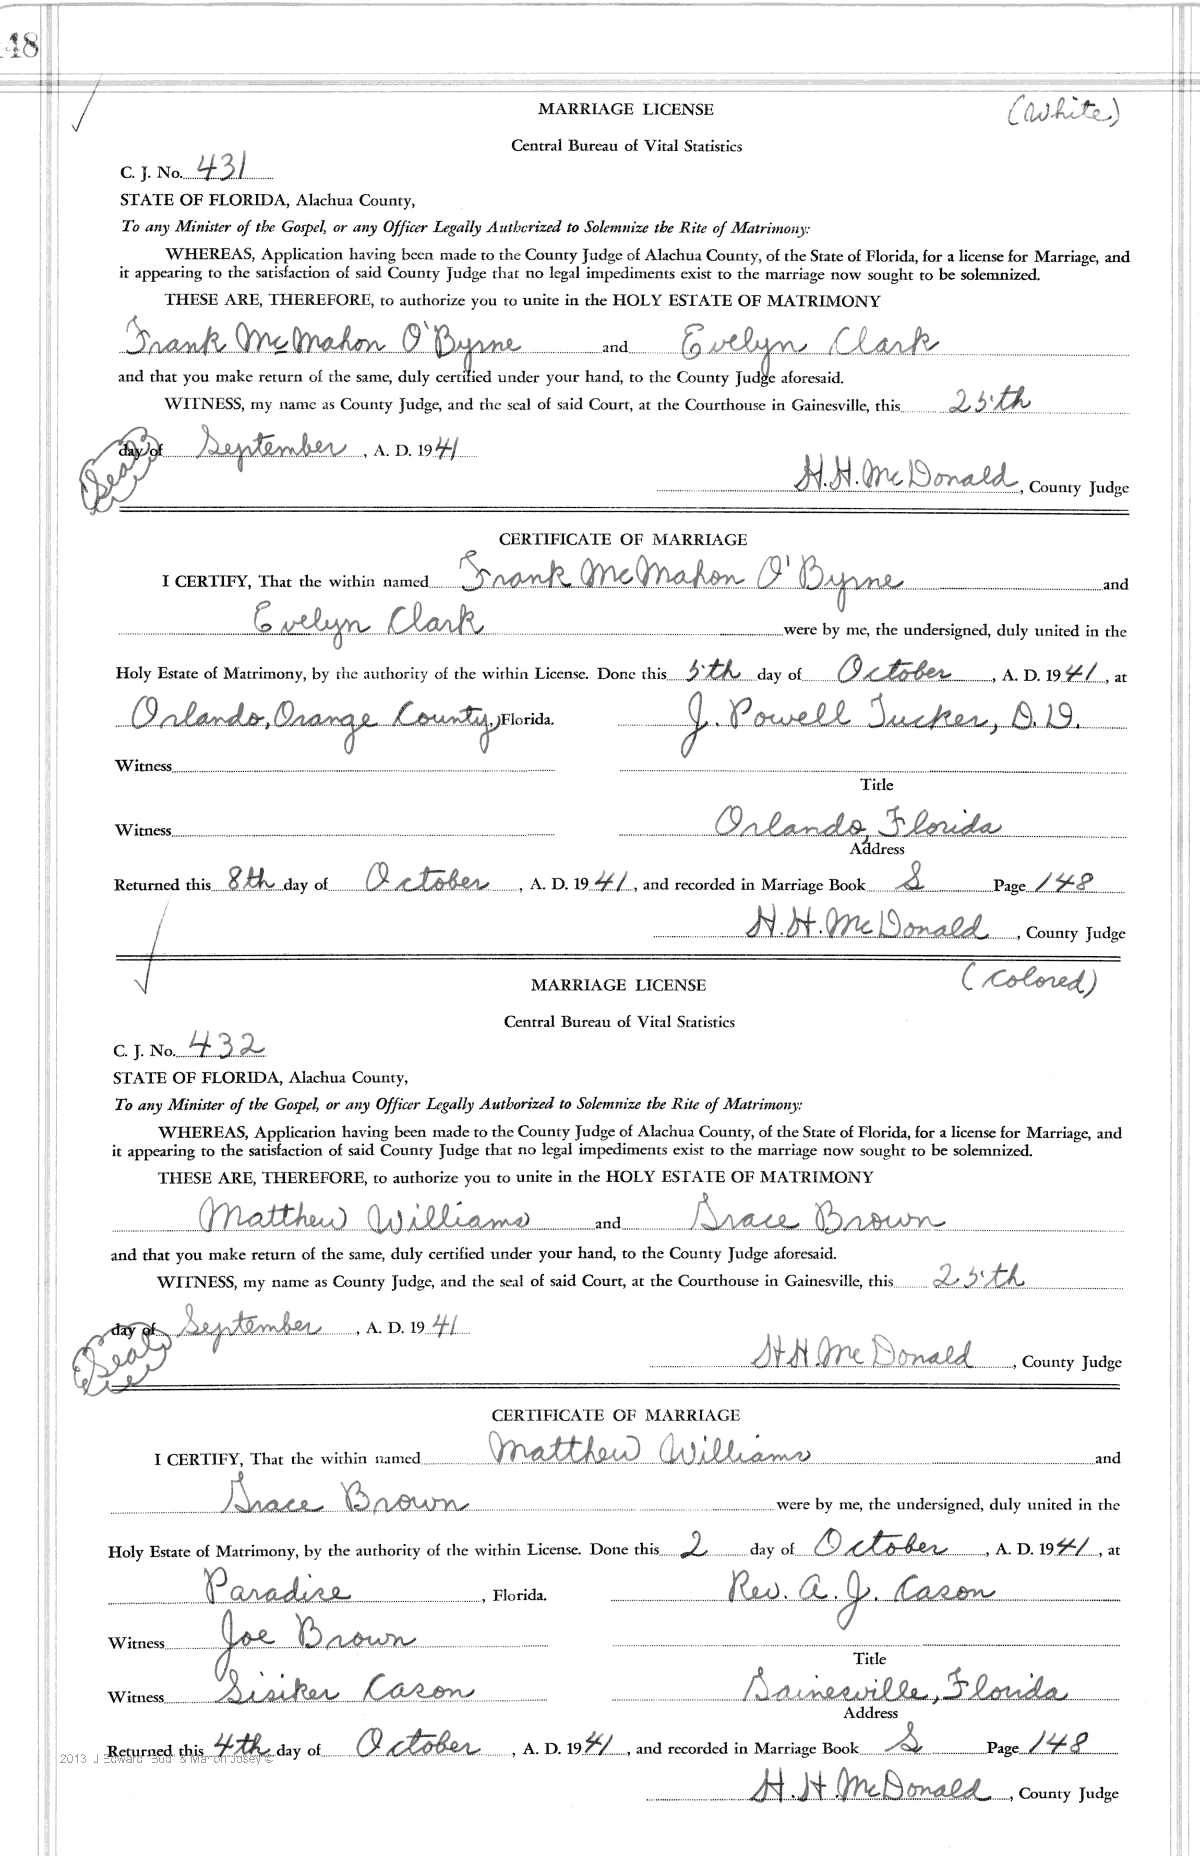 148
MARRIAGE LICENSE
(White)
Central Bureau of Vital Statistics
C. J. No. 431
STATE OF FLORIDA, Alachua County,
To any Minister of the Gospel, or any Officer Legally Authorized to Solemnize the Rite of Matrimony:
WHEREAS, Application having been made to the County Judge of Alachua County, of the State of Florida, for a license for Marriage, and
it appearing to the satisfaction of said County Judge that no legal impediments exist to the marriage now sought to be solemnized.
THESE ARE, THEREFORE, to authorize you to unite in the HOLY ESTATE OF MATRIMONY
Frank McMahon O'Byrne and Evelyn Clark
and that you make return of the same, duly certified under your hand, to the County Judge aforesaid.
WITNESS, my name as County Judge, and the seal of said Court, at the Courthouse in Gainesville, this 25th
day of September, A. D. 1941
(Seal)
H. H. McDonald, County Judge
CERTIFICATE OF MARRIAGE
I CERTIFY, That the within named Frank McMahon O'Byrne and
Evelyn Clark were by me, the undersigned, duly united in the
Holy Estate of Matrimony, by the authority of the within License. Done this 5th day of October, A. D. 1941, at
Orlando, Orange County, Florida. J. Powell Tucker, D.D.
Witness
Title
Witness Orlando, Florida
Address
Returned this 8th day of October, A. D. 1941, and recorded in Marriage Book S Page 148
H. H. McDonald, County Judge
MARRIAGE LICENSE
(Colored)
Central Bureau of Vital Statistics
C. J. No. 432
STATE OF FLORIDA, Alachua County,
To any Minister of the Gospel, or any Officer Legally Authorized to Solemnize the Rite of Matrimony:
WHEREAS, Application having been made to the County Judge of Alachua County, of the State of Florida, for a license for Marriage, and
it appearing to the satisfaction of said County Judge that no legal impediments exist to the marriage now sought to be solemnized.
THESE ARE, THEREFORE, to authorize you to unite in the HOLY ESTATE OF MATRIMONY
Matthew Williams and Grace Brown
and that you make return of the same, duly certified under your hand, to the County Judge aforesaid.
WITNESS, my name as County Judge, and the seal of said Court, at the Courthouse in Gainesville, this 25th
day of September, A. D. 1941
(Seal)
H. H. McDonald, County Judge
CERTIFICATE OF MARRIAGE
I CERTIFY, That the within named Matthew Williams and
Grace Brown were by me, the undersigned, duly united in the
Holy Estate of Matrimony, by the authority of the within License. Done this 2 day of October, A. D. 1941, at
Paradise, Florida. Rev. A. J. Cason
Witness Joe Brown
Title
Witness Sisiker Cason Gainesville, Florida
Address
Returned this 4th day of October, A. D. 1941, and recorded in Marriage Book S Page 148
2013 J Edward "Bud" & Marion Josey ©
H. H. McDonald, County Judge